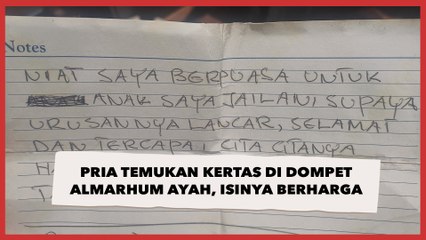 Notes
NIAT SAYA BERPUASA UNTUK
ANAK SAYA JAILANI SUPAYA
URUSANNYA LANCAR, SELAMAT
DAN TERCAPAI CITA CITANYA
PRIA TEMUKAN KERTAS DI DOMPET
ALMARHUM AYAH, ISINYA BERHARGA